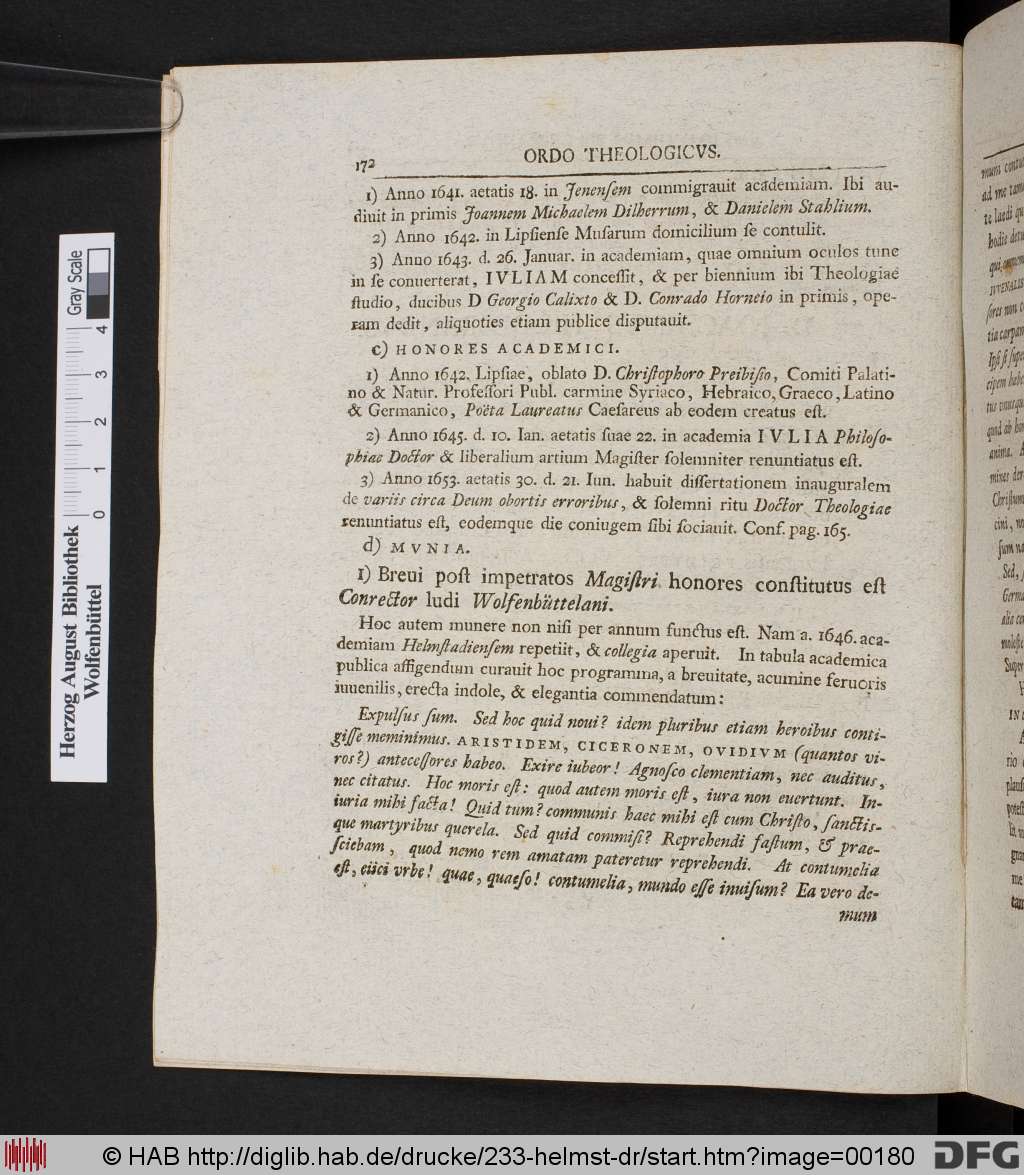 172
ORDO THEOLOGICVS.
1) Anno 1641. aetatis 18. in Jenenſem commigrauit academiam. Ibi au-
diuit in primis Joannem Michaelem Dilherrum, & Danielem Stahlium.
2) Anno 1642. in Lipſienſe Muſarum domicilium ſe contulit.
3) Anno 1643. d. 26. Januar. in academiam, quae omnium oculos tunc
in ſe conuerterat, IVLIAM conceſſit, & per biennium ibi Theologiae
ſtudio, ducibus D Georgio Calixto & D. Conrado Horneio in primis, ope-
ram dedit, aliquoties etiam publice disputauit.
c) HONORES ACADEMICI.
1) Anno 1642. Lipſiae, oblato D. Chriſtophoro Preibiſio, Comiti Palati-
no & Natur. Profeſſori Publ. carmine Syriaco, Hebraico, Graeco, Latino
& Germanico, Poëta Laureatus Caeſareus ab eodem creatus eſt.
2) Anno 1645. d. 10. Ian. aetatis ſuae 22. in academia IVLIA Philoſo-
phiae Doctor & liberalium artium Magiſter ſolemniter renuntiatus eſt.
3) Anno 1653. aetatis 30. d. 21. Iun. habuit diſſertationem inauguralem
de variis circa Deum obortis erroribus, & ſolemni ritu Doctor Theologiae
renuntiatus eſt, eodemque die coniugem ſibi ſociauit. Conf. pag. 165.
d) MVNIA.
1) Breui poſt impetratos Magiſtri honores conſtitutus eſt
Conrector ludi Wolfenbüttelani.
Hoc autem munere non niſi per annum functus eſt. Nam a. 1646. aca-
demiam Helmſtadienſem repetiit, & collegia aperuit. In tabula academica
publica affigendum curauit hoc programma, a breuitate, acumine feruoris
iuuenilis, erecta indole, & elegantia commendatum:
Expulſus ſum. Sed hoc quid noui? idem pluribus etiam heroibus conti-
giſſe meminimus. ARISTIDEM, CICERONEM, OVIDIVM (quantos vi-
ros?) anteceſſores habeo. Exire iubeor! Agnoſco clementiam, nec auditus,
nec citatus. Hoc moris eſt: quod autem moris eſt, iura non euertunt. In-
iuria mihi facta! Quid tum? communis haec mihi eſt cum Chriſto, ſanctis-
que martyribus querela. Sed quid commiſi? Reprehendi faſtum, & prae-
ſciebam, quod nemo rem amatam pateretur reprehendi. At contumelia
eſt, eiici vrbe! quae, quaeſo! contumelia, mundo eſſe inuiſum? Ea vero de-
mum
Gray Scale
0 1 2 3 4
Herzog August Bibliothek
Wolfenbüttel
© HAB http://diglib.hab.de/drucke/233-helmst-dr/start.htm?image=00180
DFG